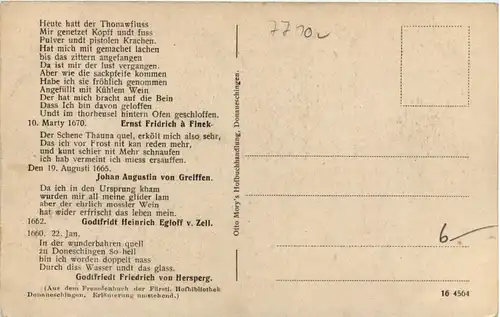 Heute hatt der Thonawfluss
Mir genetzet Kopff undt fuss
Pulver undt pistolen Krachen.
Hat mich mit gemachet lachen
bis das zittern angefangen
Da ist mir der lust vergangen.
Aber wie die sackpfeife kommen
Habe ich sie fröhlich genommen
Angefüllt mit Kühlem Wein
Der hat mich bracht auf die Bein
Dass Ich bin davon geloffen
Undt im thorheusel hintern Ofen geschloffen.
10. Marty 1670. Ernst Fridrich à Finek-
Der Schene Thauna quel, erkölt mich also sehr,
Das ich vor Frost nit kan reden mehr,
und kunt schier nit Mehr schnaufen
ich hab vermeint ich miess ersauffen.
Den 19. Augusti 1665.
Johan Augustin von Greiffen.
Da ich in den Ursprung kham
wurden mir all meine glider lam
aber der ehrlich mossler Wein
hat wider erfrischt das leben mein.
1662. Godtfridt Heinrich Egloff v. Zell.
1660. 22. Jan.
In der wunderbahren quell
zu Doneschingen So hell
bin ich worden doppelt nass
Durch dias Wasser undt das glass.
Godtfriedt Friedrich von Hersperg.
(Aus dem Freudenbuch der Fürstl. Hofbibliothek
Donaueschingen. Erläuterung umstehend.)
Otto Mory's Hofbuchhandlung, Donaueschingen.
6-
16 4564